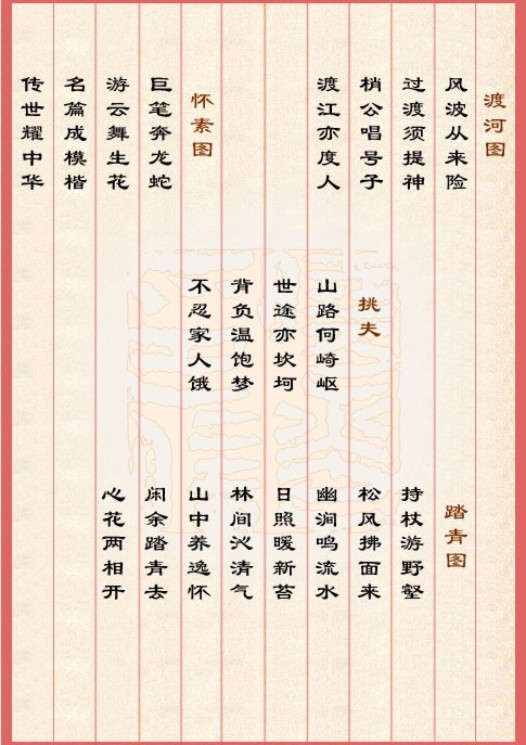 渡河图
风波从来险
过渡须提神
梢公唱号子
渡江亦度人
怀素图
巨笔奔龙蛇
游云舞生花
名篇成模楷
传世耀中华
挑夫
山路何崎岖
世途亦坎坷
背负温饱梦
不忍家人饿
踏青图
持杖游野壑
松风拂面来
幽涧鸣流水
日照暖新苔
林间沁清气
山中养逸怀
闲余踏青去
心花两相开